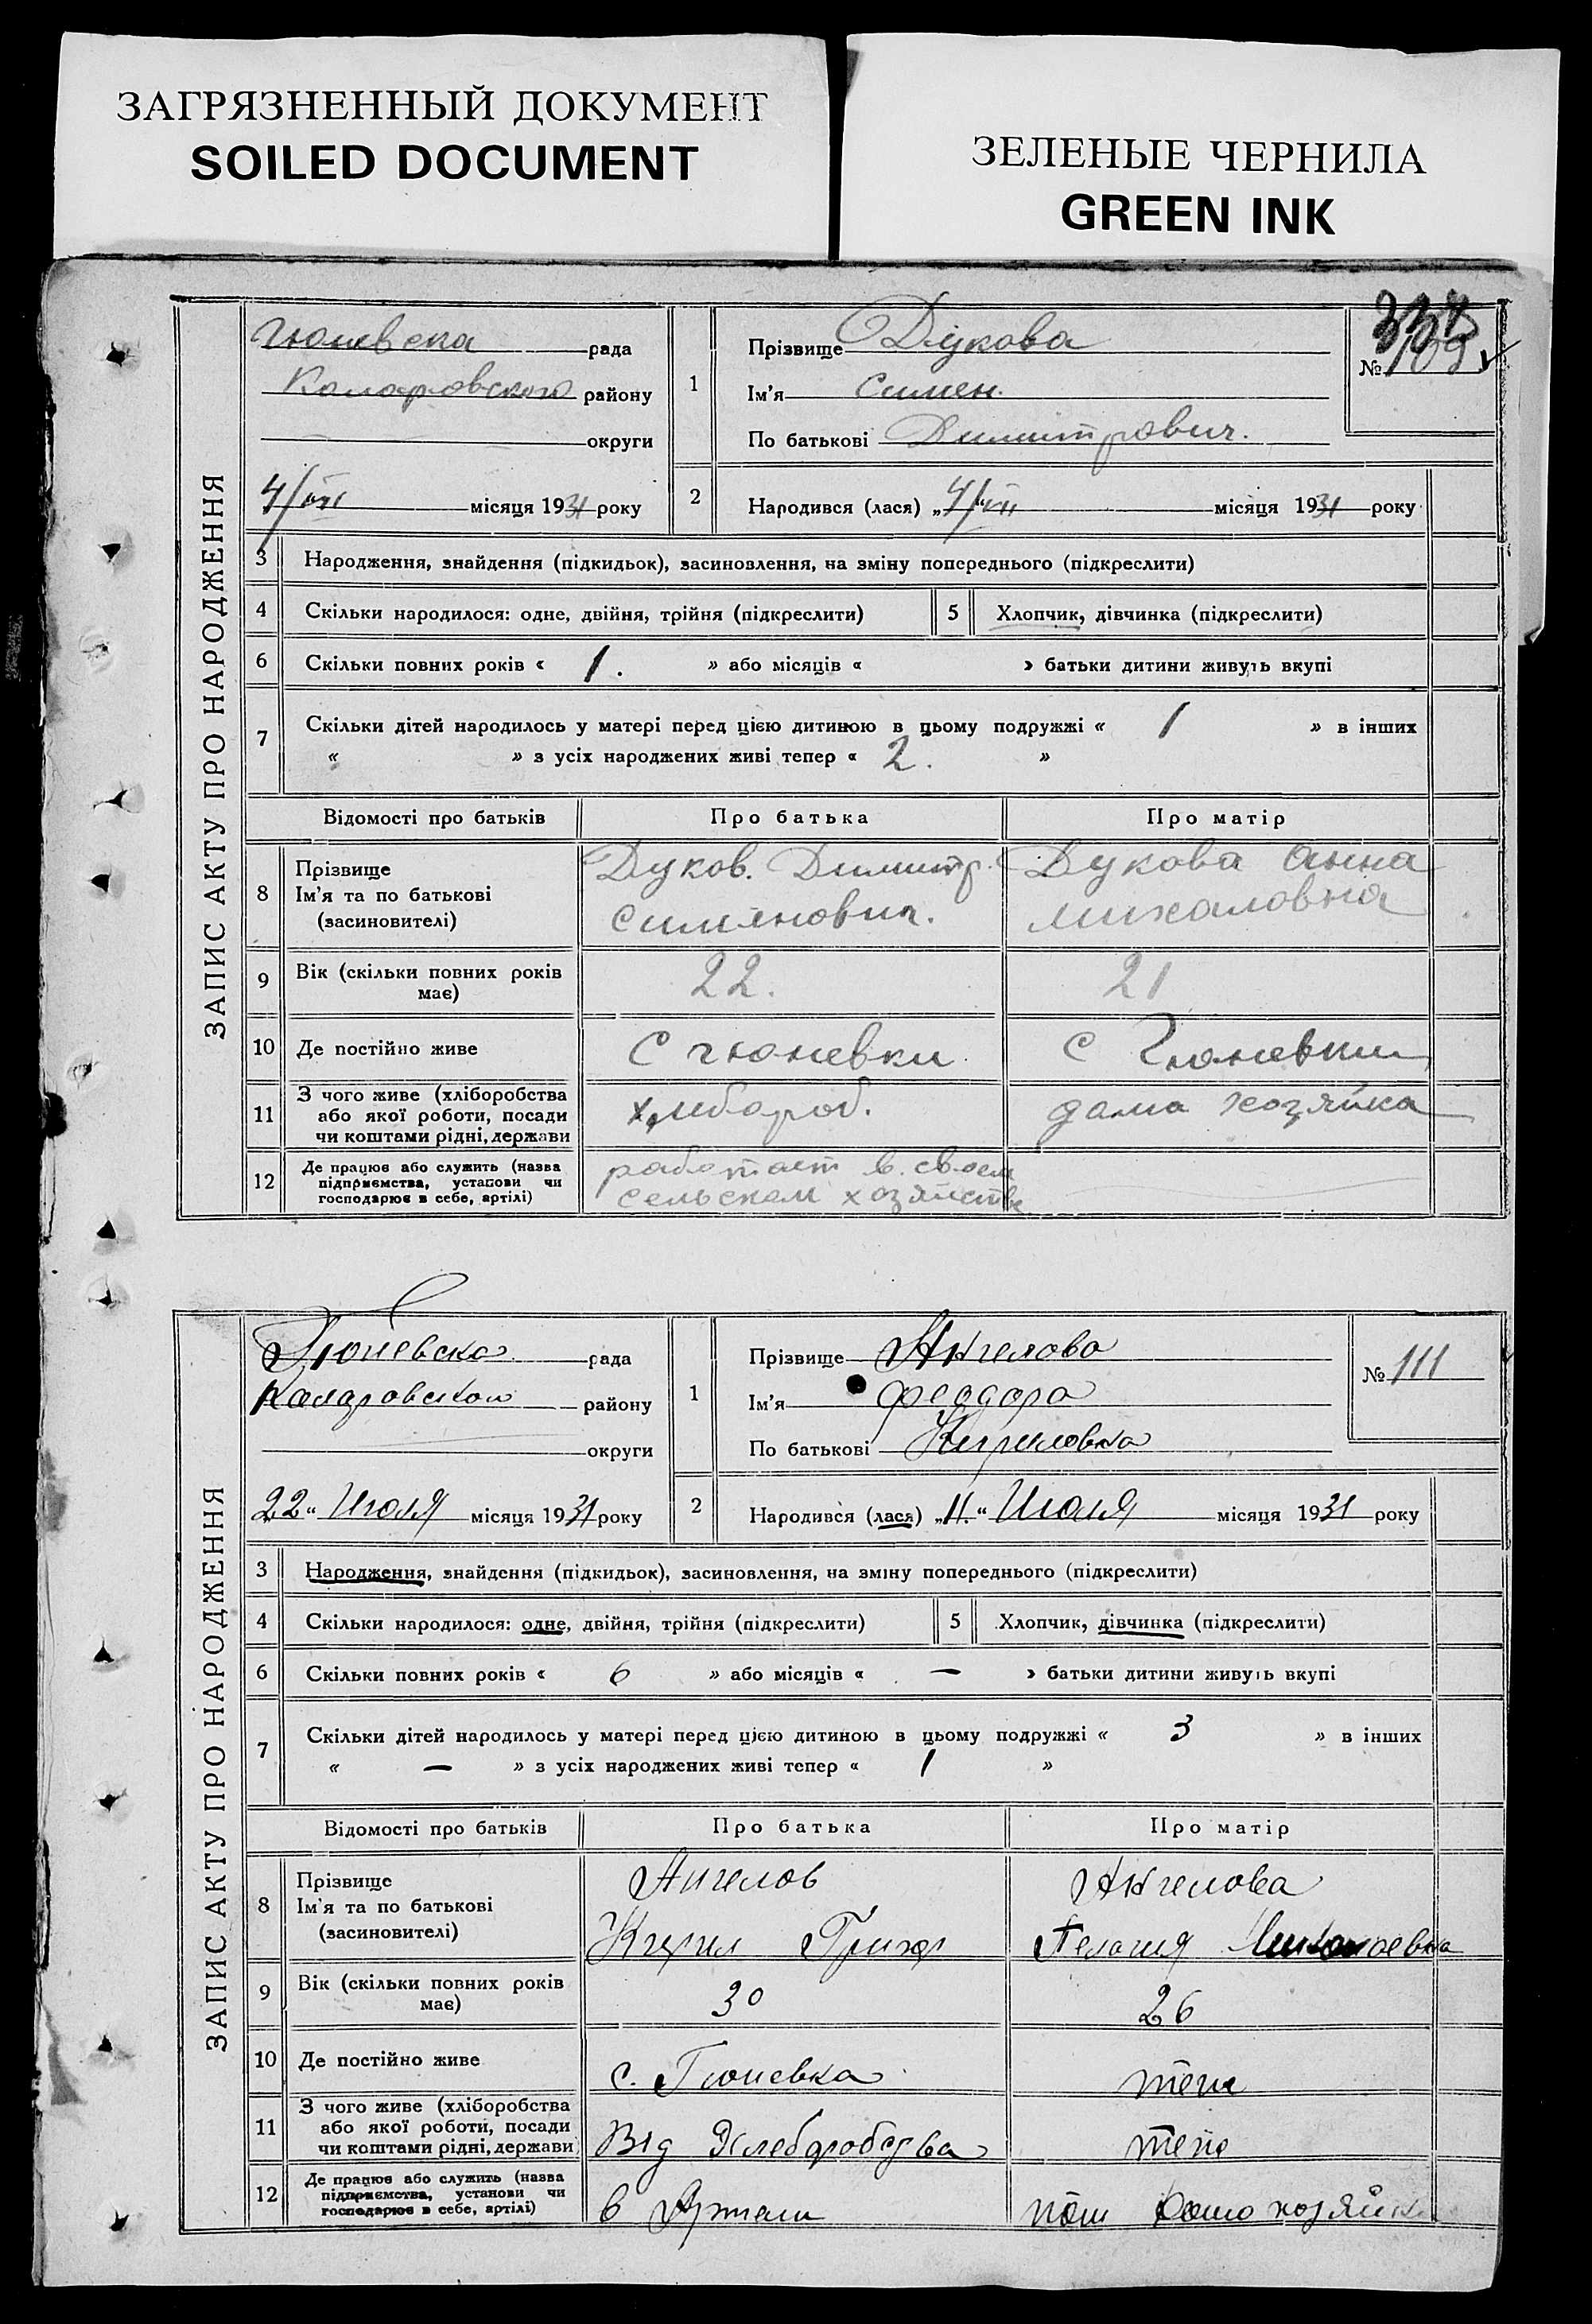 ЗАГРЯЗНЕННЫЙ ДОКУМЕНТ
SOILED DOCUMENT
ЗЕЛЕНЫЕ ЧЕРНИЛА
GREEN INK
ЗАПИС АКТУ ПРО НАРОДЖЕННЯ
Гюневска рада
Коларовского району
округи
4/VII місяця 1931 року
1
Прізвище Дукова
Ім'я Симен.
По батькові Димитрович.
№ 109
2 Народився (лася) „4/VII місяця 1931 року
3 Народження, знайдення (підкидьок), засиновлення, на зміну попереднього (підкреслити)
4 Скільки народилося: одне, двійня, трійня (підкреслити) 5 Хлопчик, дівчинка (підкреслити)
6 Скільки повних років « 1. » або місяців « » батьки дитини живуть вкупі
7 Скільки дітей народилось у матері перед цією дитиною в цьому подружжі « 1 » в інших
« » з усіх народжених живі тепер « 2. »
Відомості про батьків Про батька Про матір
8 Прізвище
Ім'я та по батькові
(засиновителі)
Дуков. Димитр.
Симянович.
Дукова Анна
Михаловна
9 Вік (скільки повних років
має)
22. 21
10 Де постійно живе С Гюневки С Гюневки
11 З чого живе (хліборобства
або якої роботи, посади
чи коштами рідні, держави
хлибороб. дама хозяйка
12 Де працює або служить (назва
підприємства, установи чи
господарює в себе, артілі)
работает в. своем
сельском хозяйстве
ЗАПИС АКТУ ПРО НАРОДЖЕННЯ
Гюневска рада
Коларовском району
округи
22 „ Июля місяця 1931 року
1
Прізвище Ангелова
Ім'я Феодора
По батькові Кириловна
№ 111
2 Народився (лася) „11.“ Июля місяця 1931 року
3 Народження, знайдення (підкидьок), засиновлення, на зміну попереднього (підкреслити)
4 Скільки народилося: одне, двійня, трійня (підкреслити) 5 Хлопчик, дівчинка (підкреслити)
6 Скільки повних років « 6 » або місяців « — » батьки дитини живуть вкупі
7 Скільки дітей народилось у матері перед цією дитиною в цьому подружжі « 3 » в інших
« — » з усіх народжених живі тепер « 1 »
Відомості про батьків Про батька Про матір
8 Прізвище
Ім'я та по батькові
(засиновителі)
Ангелов
Кирил Григор
Ангелова
Пелагия Николаевна
9 Вік (скільки повних років
має)
30 26
10 Де постійно живе с. Гюневка теж
11 З чого живе (хліборобства
або якої роботи, посади
чи коштами рідні, держави
Від Хлеборобства теж
12 Де працює або служить (назва
підприємства, установи чи
господарює в себе, артілі)
в Артели
домохозяйка